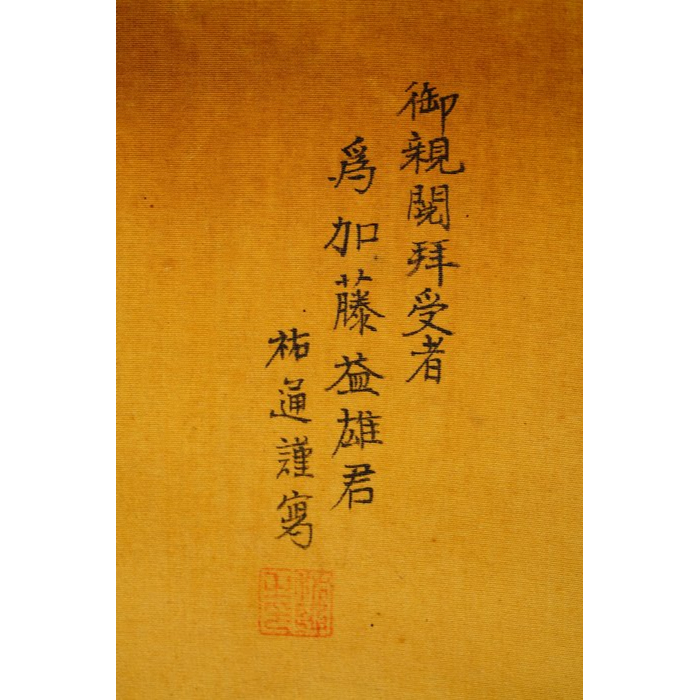 御親閲拝受者
為加藤益雄君
祐通謹寫